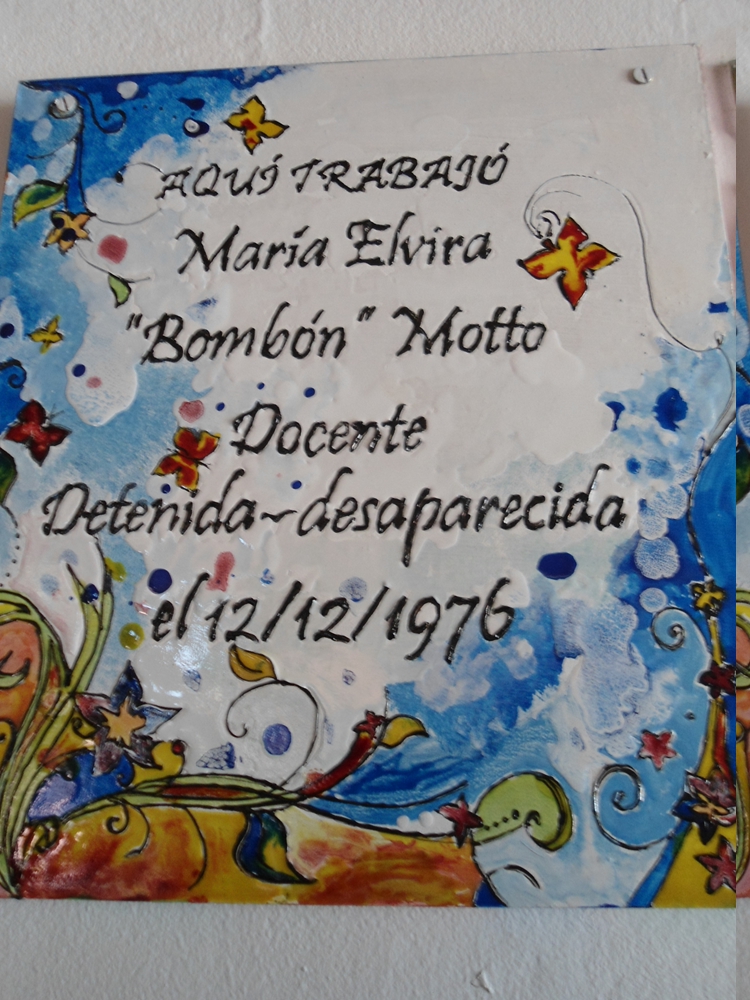 AQUÍ TRABAJÓ
María Elvira
"Bombón" Motto
Docente
Detenida~desaparecida
el 12/12/1976